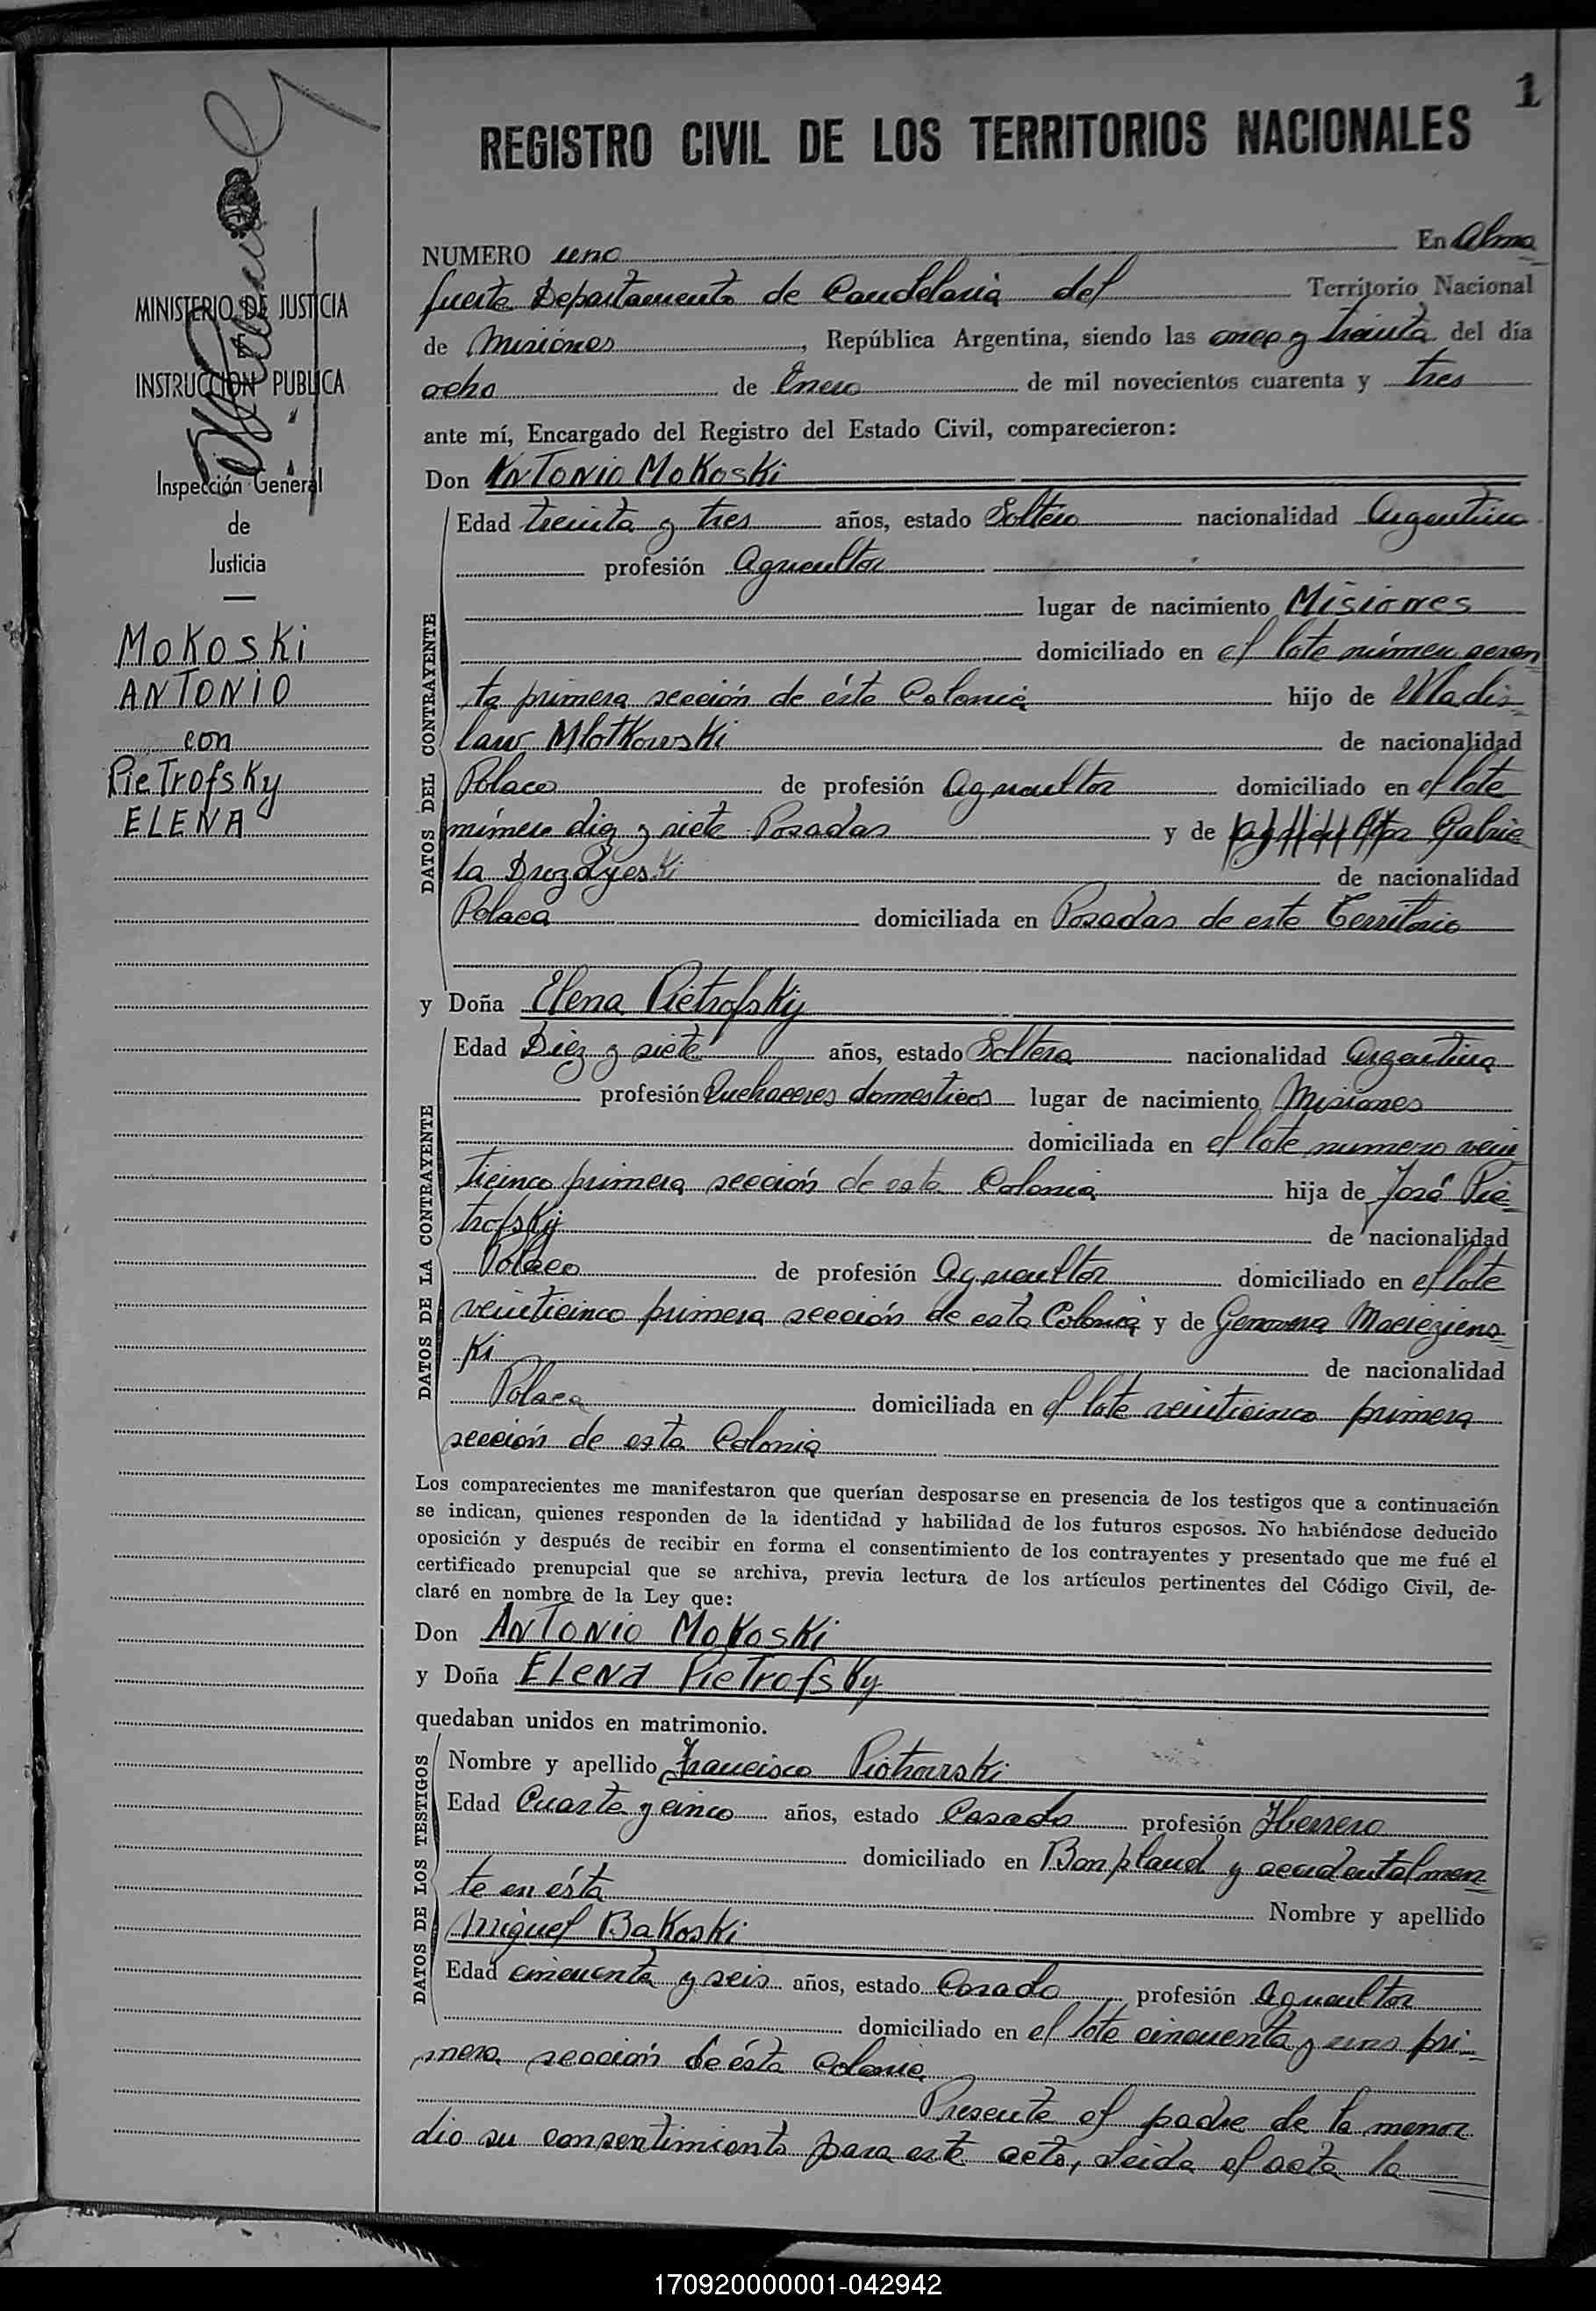 1
REGISTRO CIVIL DE LOS TERRITORIOS NACIONALES
MINISTERIO DE JUSTICIA
E
INSTRUCCION PUBLICA
Inspección General
de
Justicia
MoKosKi
ANTONIO
con
PieTrofsKy
ELENA
NUMERO uno En Alma
fuerte Departamento de Candelaria del Territorio Nacional
de Misiones, República Argentina, siendo las once y treinta del día
ocho de Enero de mil novecientos cuarenta y tres
ante mí, Encargado del Registro del Estado Civil, comparecieron:
Don ANTONIO MoKosKi
DATOS DEL CONTRAYENTE
Edad treinta y tres años, estado Soltero nacionalidad Argentino
profesión Agricultor
lugar de nacimiento Misiones
domiciliado en el lote número
ta primera sección de ésta Colonia hijo de Wladis
law MlotKowski de nacionalidad
Polaco de profesión Agricultor domiciliado en el lote
número diez y siete Posadas y de Gabrie
la de nacionalidad
Polaca domiciliada en Posadas de este Territorio
y Doña Elena PietrofsKy
DATOS DE LA CONTRAYENTE
Edad Diez y siete años, estado Soltera nacionalidad Argentina
profesión Quehaceres domesticos lugar de nacimiento Misiones
domiciliada en el lote numero vein
ticinco primera sección de esta Colonia hija de José Pie
trofsKy de nacionalidad
Polaco de profesión Agricultor domiciliado en el lote
veinticinco primera sección de esta Colonia y de Genoveva Macieziens
Ki de nacionalidad
Polaca domiciliada en el lote veinticinco primera
sección de esta Colonia
Los comparecientes me manifestaron que querían desposarse en presencia de los testigos que a continuación
se indican, quienes responden de la identidad y habilidad de los futuros esposos. No habiéndose deducido
oposición y después de recibir en forma el consentimiento de los contrayentes y presentado que me fué el
certificado prenupcial que se archiva, previa lectura de los artículos pertinentes del Código Civil, de-
claré en nombre de la Ley que:
Don ANTONIO MoKosKi
y Doña ELENA PieTrofsKy
quedaban unidos en matrimonio.
DATOS DE LOS TESTIGOS
Nombre y apellido Francisco Piotrowski
Edad Cuarte y cinco años, estado Casado profesión Herrero
domiciliado en Bonpland y accidentalmen
te en ésta Nombre y apellido
Miguel BaKosKi
Edad cincuenta y seis años, estado Casado profesión Agricultor
domiciliado en el lote cincuenta y uno pri
mera sección de ésta Colonia
Presente el padre de la menor
dio su consentimiento para este acto, Leida el acta la
170920000001-042942